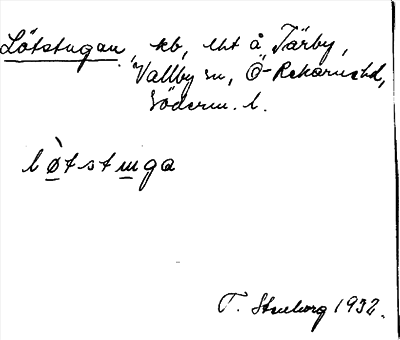 Lötstugan, kb, lht å Tärby,
Vallby sn, Ö-Rekarne hd,
Söderm. l.
lø̀tstuga
T. Stenborg 1932.